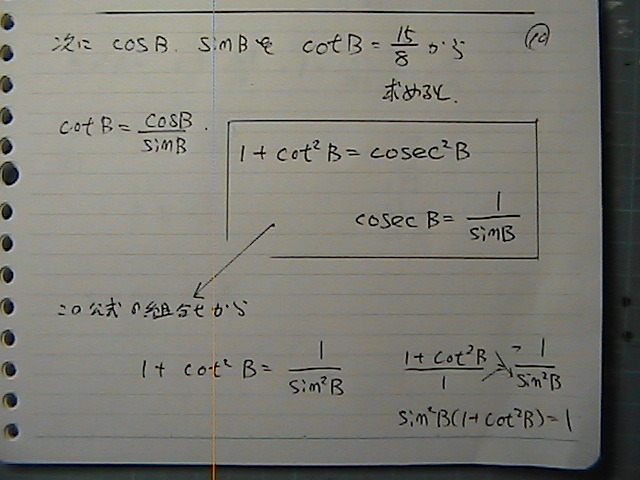 次に cosB. sinBを cotB = 15/8 から
⑩
求めると.
cotB = cosB/sinB .
1 + cot²B = cosec²B
cosec B = 1/sinB
この公式の組合せから
1 + cot²B = 1/sin²B
(1 + cot²B)/1 = 1/sin²B
sin²B(1+cot²B) = 1